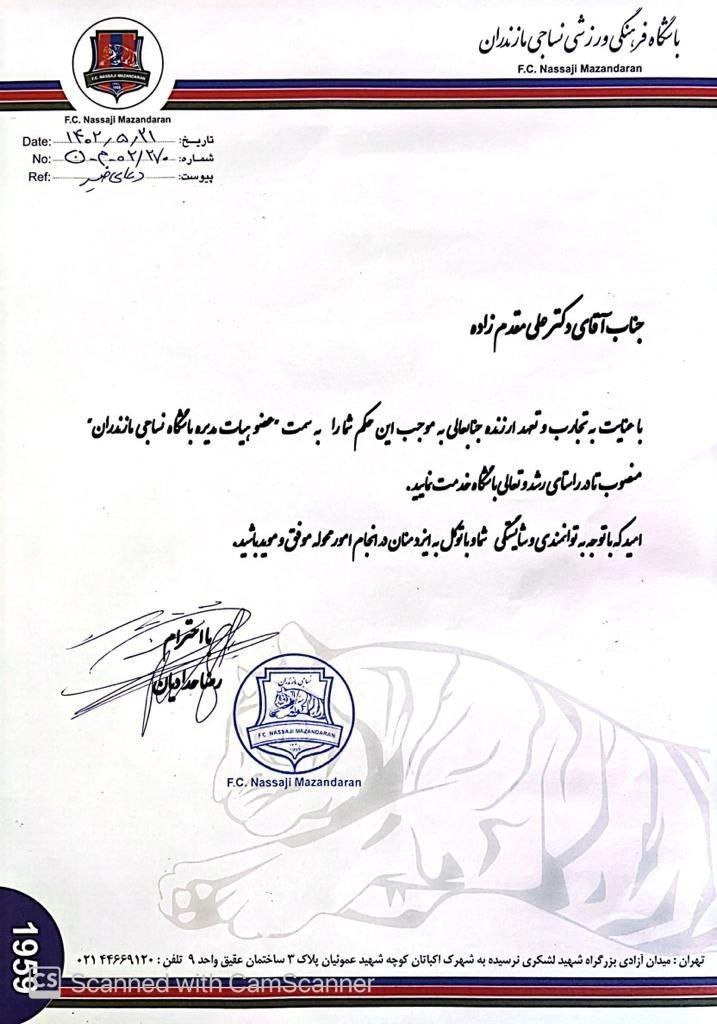 باشگاه فرهنگی ورزشی نساجی مازندران
F.C. Nassaji Mazandaran
F.C. NASSAJI MAZANDARAN
F.C. Nassaji Mazandaran
تاریخ: ۱۴۰۲٫۵٫۲۱ Date:
شماره: ۰۲/۲۷۰-م-ن No:
پیوست: دعای خیر Ref:
جناب آقای دکتر علی مقدم زاده
با عنایت به تجارب و تعهد ارزنده جنابعالی به موجب این حکم شما را به سمت "عضو هیات مدیره باشگاه نساجی مازندران"
منصوب تا در راستای رشد و تعالی باشگاه خدمت نمایید.
امید که با توجه به توانمندی و شایستگی شما و با توکل به ایزد منان در انجام امور محوله موفق و موید باشید.
با احترام
رضا حدادیان
نساجی مازندران
F.C. NASSAJI MAZANDARAN
1959
F.C. Nassaji Mazandaran
1959
تهران : میدان آزادی بزرگراه شهید لشکری نرسیده به شهرک اکباتان کوچه شهید عموئیان پلاک ۳ ساختمان عقیق واحد ۹ تلفن : ۴۴۶۶۹۱۲۰ ۰۲۱
CS Scanned with CamScanner